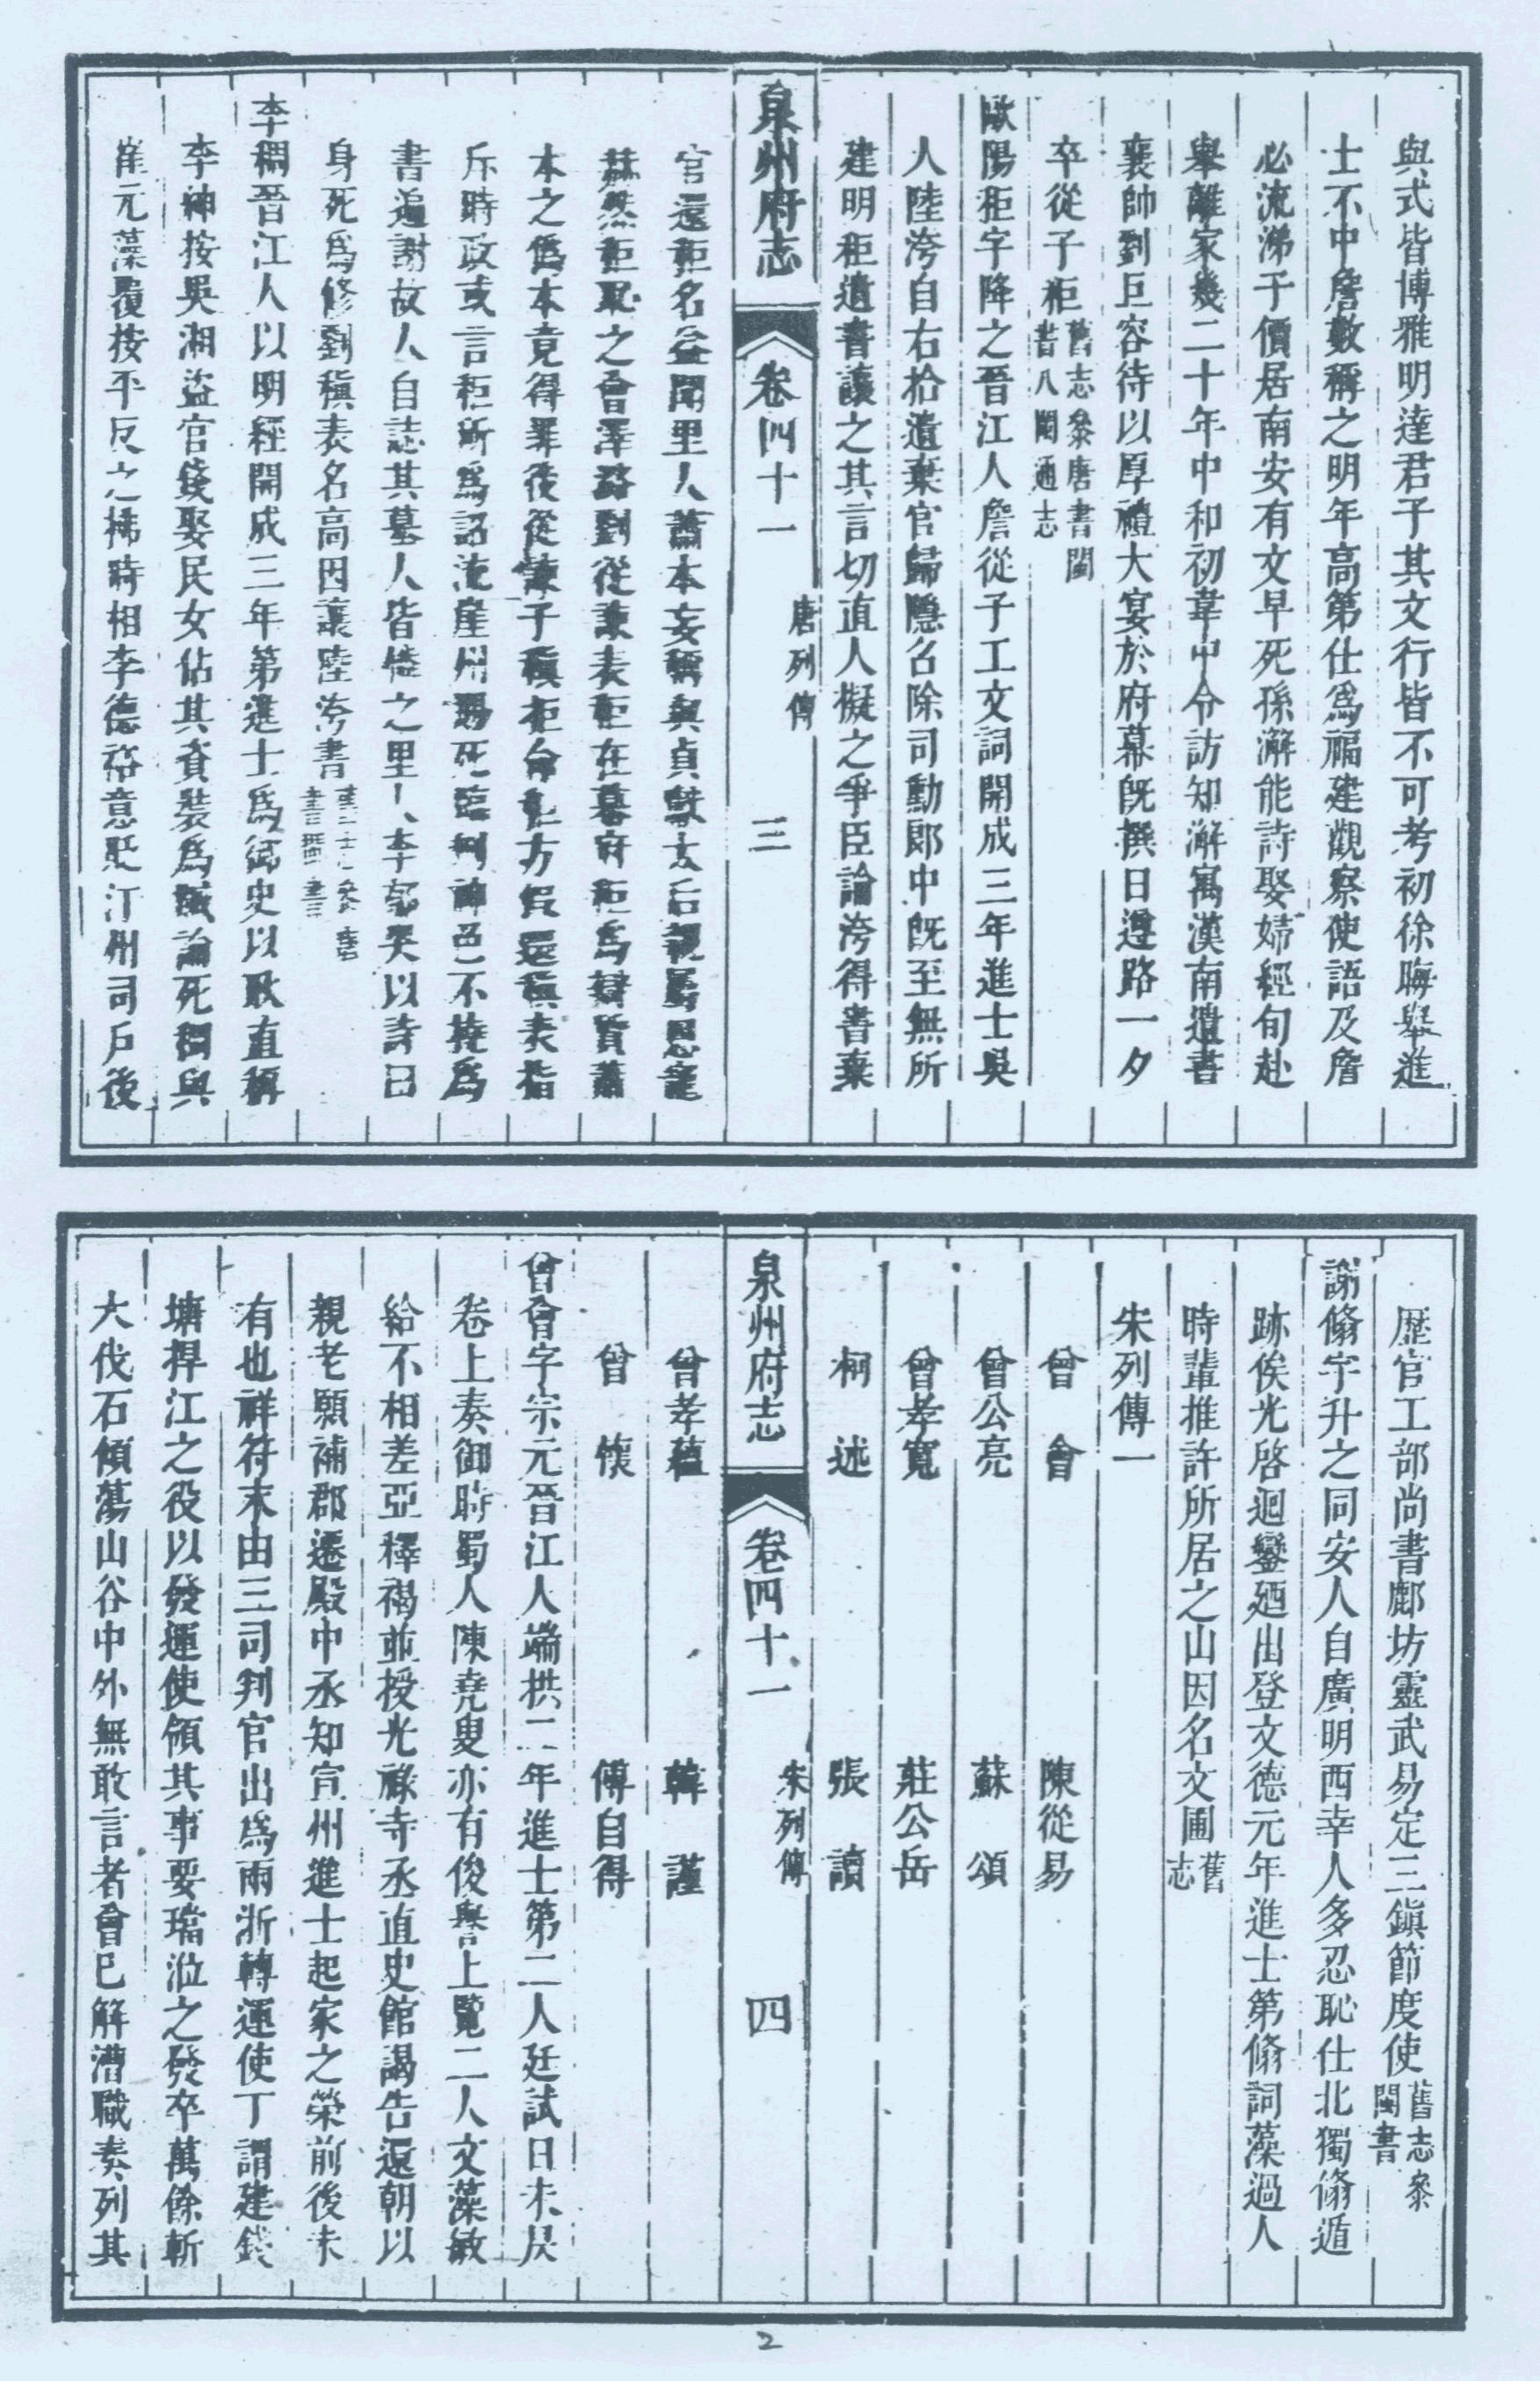 與式皆博雅明達君子其文行皆不可考初徐晦舉進
士不中詹數稱之明年高第仕爲福建觀察使語及詹
必流涕子價居南安有文早死孫澥能詩娶婦經旬赴
舉離家幾二十年中和初韋中令訪知澥寓漢南遺書
襄帥劉巨容待以厚禮大宴於府幕旣撰日遵路一夕
卒從子秬舊志參唐書閩書八閩通志
歐陽秬字降之晉江人詹從子工文詞開成三年進士吳
人陸洿自右拾遺棄官歸隱召除司勳郎中旣至無所
建明秬遺書讓之其言切直人擬之爭臣論洿得書棄
泉州府志 卷四十一 唐列傳 三
官還秬名益聞里人蕭本妄稱與貞獻太后親屬恩寵
赫然秬恥之會澤潞劉從諫表秬在幕府秬爲辯質蕭
本之僞本竟得罪後從諫子稹秬台方假還稹表指
斥時政或言秬所爲詔流崖州賜死臨刑神色不撓爲
書遍謝故人自誌其墓人皆憐之里人李郁哭以詩曰
身死爲修劉稹表名高因讓陸洿書舊志參唐書閩書
李稠晉江人以明經開成三年第進士爲御史以耿直稱
李紳按吳湘盜官錢娶民女估其資裝爲贓論死稠與
崔元藻覆按平反之拂時相李德裕意貶汀州司戶後
歷官工部尚書鄜坊靈武易定三鎭節度使舊志參閩書
謝翛字升之同安人自廣明西幸人多忍恥仕北獨翛遁
跡俟光啓迴鑾廼出登文德元年進士第翛詞藻過人
時輩推許所居之山因名文圃舊志
宋列傳一
曾會 陳從易
曾公亮 蘇頌
曾孝寬 莊公岳
柯述 張讀
泉州府志 卷四十一 宋列傳 四
曾孝蘊 韓謹
曾懷 傅自得
曾會字宗元晉江人端拱二年進士第二人廷試日未昃
卷上奏御時蜀人陳堯叟亦有俊譽上覽二人文藻敏
給不相差亞釋褐並授光祿寺丞直史館謁告還朝以
親老願補郡遷殿中丞知宣州進士起家之榮前後未
有也祥符末由三司判官出爲兩浙轉運使丁謂建錢
塘捍江之役以發運使領其事要璫涖之發卒萬餘斬
大伐石傾蕩山谷中外無敢言者會已解漕職奏列其
2